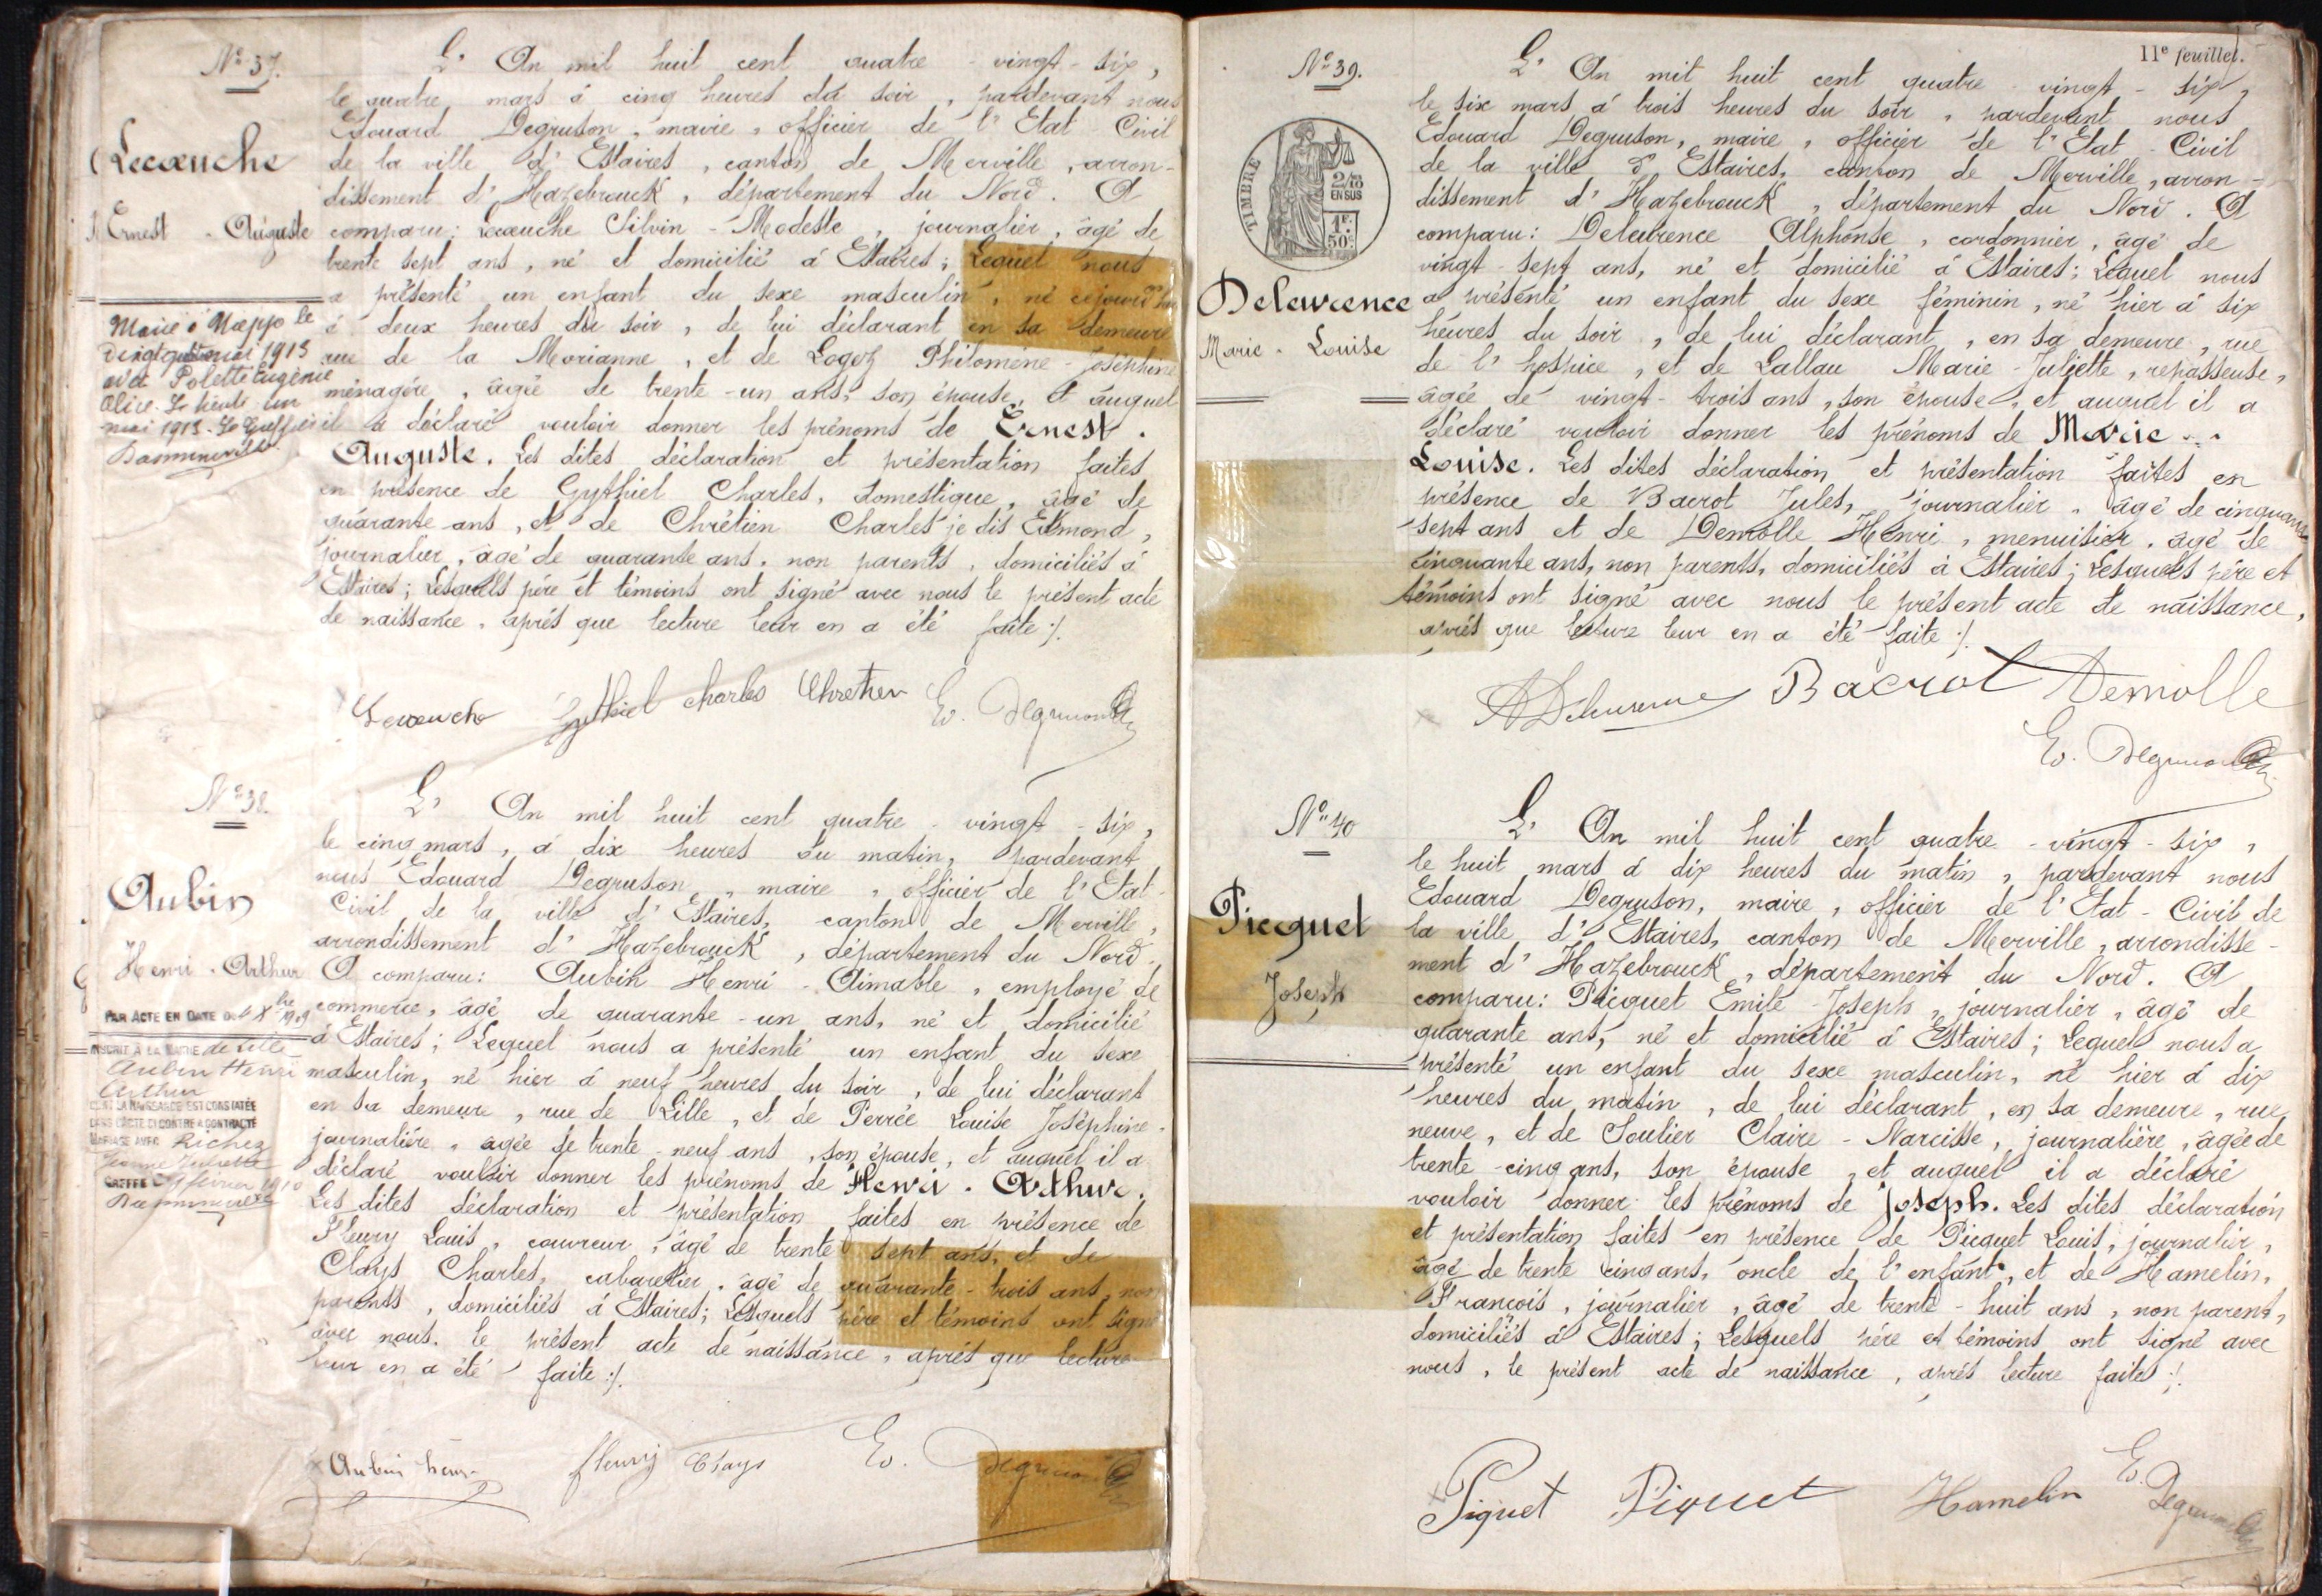 Nº 37.
Lecœuche
Ernest - Auguste
Marié à Nieppe le
vingt quatre mai 1913
avec Polette Eugénie
Alice. Le trente un
mai 1913. Le Greffier
L'An mil huit cent quatre - vingt - six,
le quatre mars à cinq heures du soir, pardevant nous
Edouard Degruson, maire, officier de l'Etat - Civil
de la ville d'Estaires, canton de Merville, arron-
dissement d'Hazebrouck, département du Nord. A
comparu: Lecœuche Silvin - Modeste, journalier, âgé de
trente sept ans, né et domicilié à Estaires; Lequel nous
a présenté un enfant du sexe masculin, né cejourd'hui
à deux heures du soir, de lui déclarant en sa demeure
rue de la Morianne, et de Logez Philomène - Joséphine
ménagère, âgée de trente - un ans, son épouse, et auquel
il a déclaré vouloir donner les prénoms de Ernest .
Auguste. Les dites déclaration et présentation faites
en présence de Gythiel Charles, domestique, âgé de
quarante ans, et de Chrétien Charles je dis Edmond,
journalier, âgé de quarante ans, non parents, domiciliés à
Estaires; Lesquels père et témoins ont signé avec nous le présent acte
de naissance, après que lecture leur en a été faite :/.
Lecœuche Gythiel Charles Chretien E. Degruson
Nº 38.
Aubin
Henri - Arthur
PAR ACTE EN DATE DU 4 Xbre 1909
INSCRIT À LA MAIRIE de Lille
Aubin Henri
Arthur
DONT LA NAISSANCE EST CONSTATÉE
DANS L'ACTE CI CONTRE A CONTRACTÉ
MARIAGE AVEC Richez
Jeanne Juliette
GREFFE février 1910
L'An mil huit cent quatre - vingt - six,
le cinq mars, à dix heures du matin, pardevant
nous Edouard Degruson, maire, officier de l'Etat -
Civil de la ville d'Estaires, canton de Merville,
arrondissement d'Hazebrouck, département du Nord.
A comparu: Aubin Henri - Aimable, employé de
commerce, âgé de quarante - un ans, né et domicilié
à Estaires; Lequel nous a présenté un enfant du sexe
masculin, né hier à neuf heures du soir, de lui déclarant
en sa demeure, rue de Lille, et de Perrée Louise Joséphine,
journalière, âgée de trente - neuf ans, son épouse, et auquel il a
déclaré vouloir donner les prénoms de Henri . Arthur.
Les dites déclaration et présentation faites en présence de
Fleury Louis, couvreur, âgé de trente sept ans, et de
Clays Charles, cabaretier, âgé de quarante - trois ans, non
parents, domiciliés à Estaires; Lesquels père et témoins ont signé
avec nous le présent acte de naissance, après que lecture
leur en a été faite :/.
Aubin henri fleury Clays E. Degruson
11e feuillet.
Nº 39.
TIMBRE
2/10
EN SUS
1F.
50c.
Delaurence
Marie - Louise
L'An mil huit cent quatre - vingt - six,
le six mars à trois heures du soir, pardevant nous
Edouard Degruson, maire, officier de l'Etat - Civil
de la ville d'Estaires, canton de Merville, arron-
dissement d'Hazebrouck, département du Nord. A
comparu: Delaurence Alphonse, cordonnier, âgé de
vingt - sept ans, né et domicilié à Estaires; Lequel nous
a présenté un enfant du sexe féminin, né hier à six
heures du soir, de lui déclarant, en sa demeure, rue
de l'hospice, et de Lallau Marie - Juliette, repasseuse,
âgée de vingt - trois ans, son épouse, et auquel il a
déclaré vouloir donner les prénoms de Marie - .
Louise. Les dites déclaration et présentation faites en
présence de Bacrot Jules, journalier, âgé de cinquante
sept ans et de Demolle Henri, menuisier, âgé de
cinquante ans, non parents, domiciliés à Estaires; Lesquels père et
témoins ont signé avec nous le présent acte de naissance,
après que lecture leur en a été faite :/.
ADelaurence Bacrot Demolle
E. Degruson
Nº 40
Picquet
Joseph
L'An mil huit cent quatre - vingt - six,
le huit mars à dix heures du matin, pardevant nous
Edouard Degruson, maire, officier de l'Etat - Civil de
la ville d'Estaires, canton de Merville, arrondisse-
ment d'Hazebrouck, département du Nord. A
comparu: Picquet Emile - Joseph, journalier, âgé de
quarante ans, né et domicilié à Estaires; Lequel nous a
présenté un enfant du sexe masculin, né hier à dix
heures du matin, de lui déclarant, en sa demeure, rue
neuve, et de Soulier Claire - Narcisse, journalière, âgée de
trente - cinq ans, son épouse, et auquel il a déclaré
vouloir donner les prénoms de Joseph. Les dites déclaration
et présentation faites en présence de Picquet Louis, journalier,
âgé de trente cinq ans, oncle de l'enfant, et de Hamelin,
François, journalier, âgé de trente - huit ans, non parent,
domiciliés à Estaires; Lesquels père et témoins ont signé avec
nous, le présent acte de naissance, après lecture faite :/.
Piquet Piquet Hamelin E. Degruson